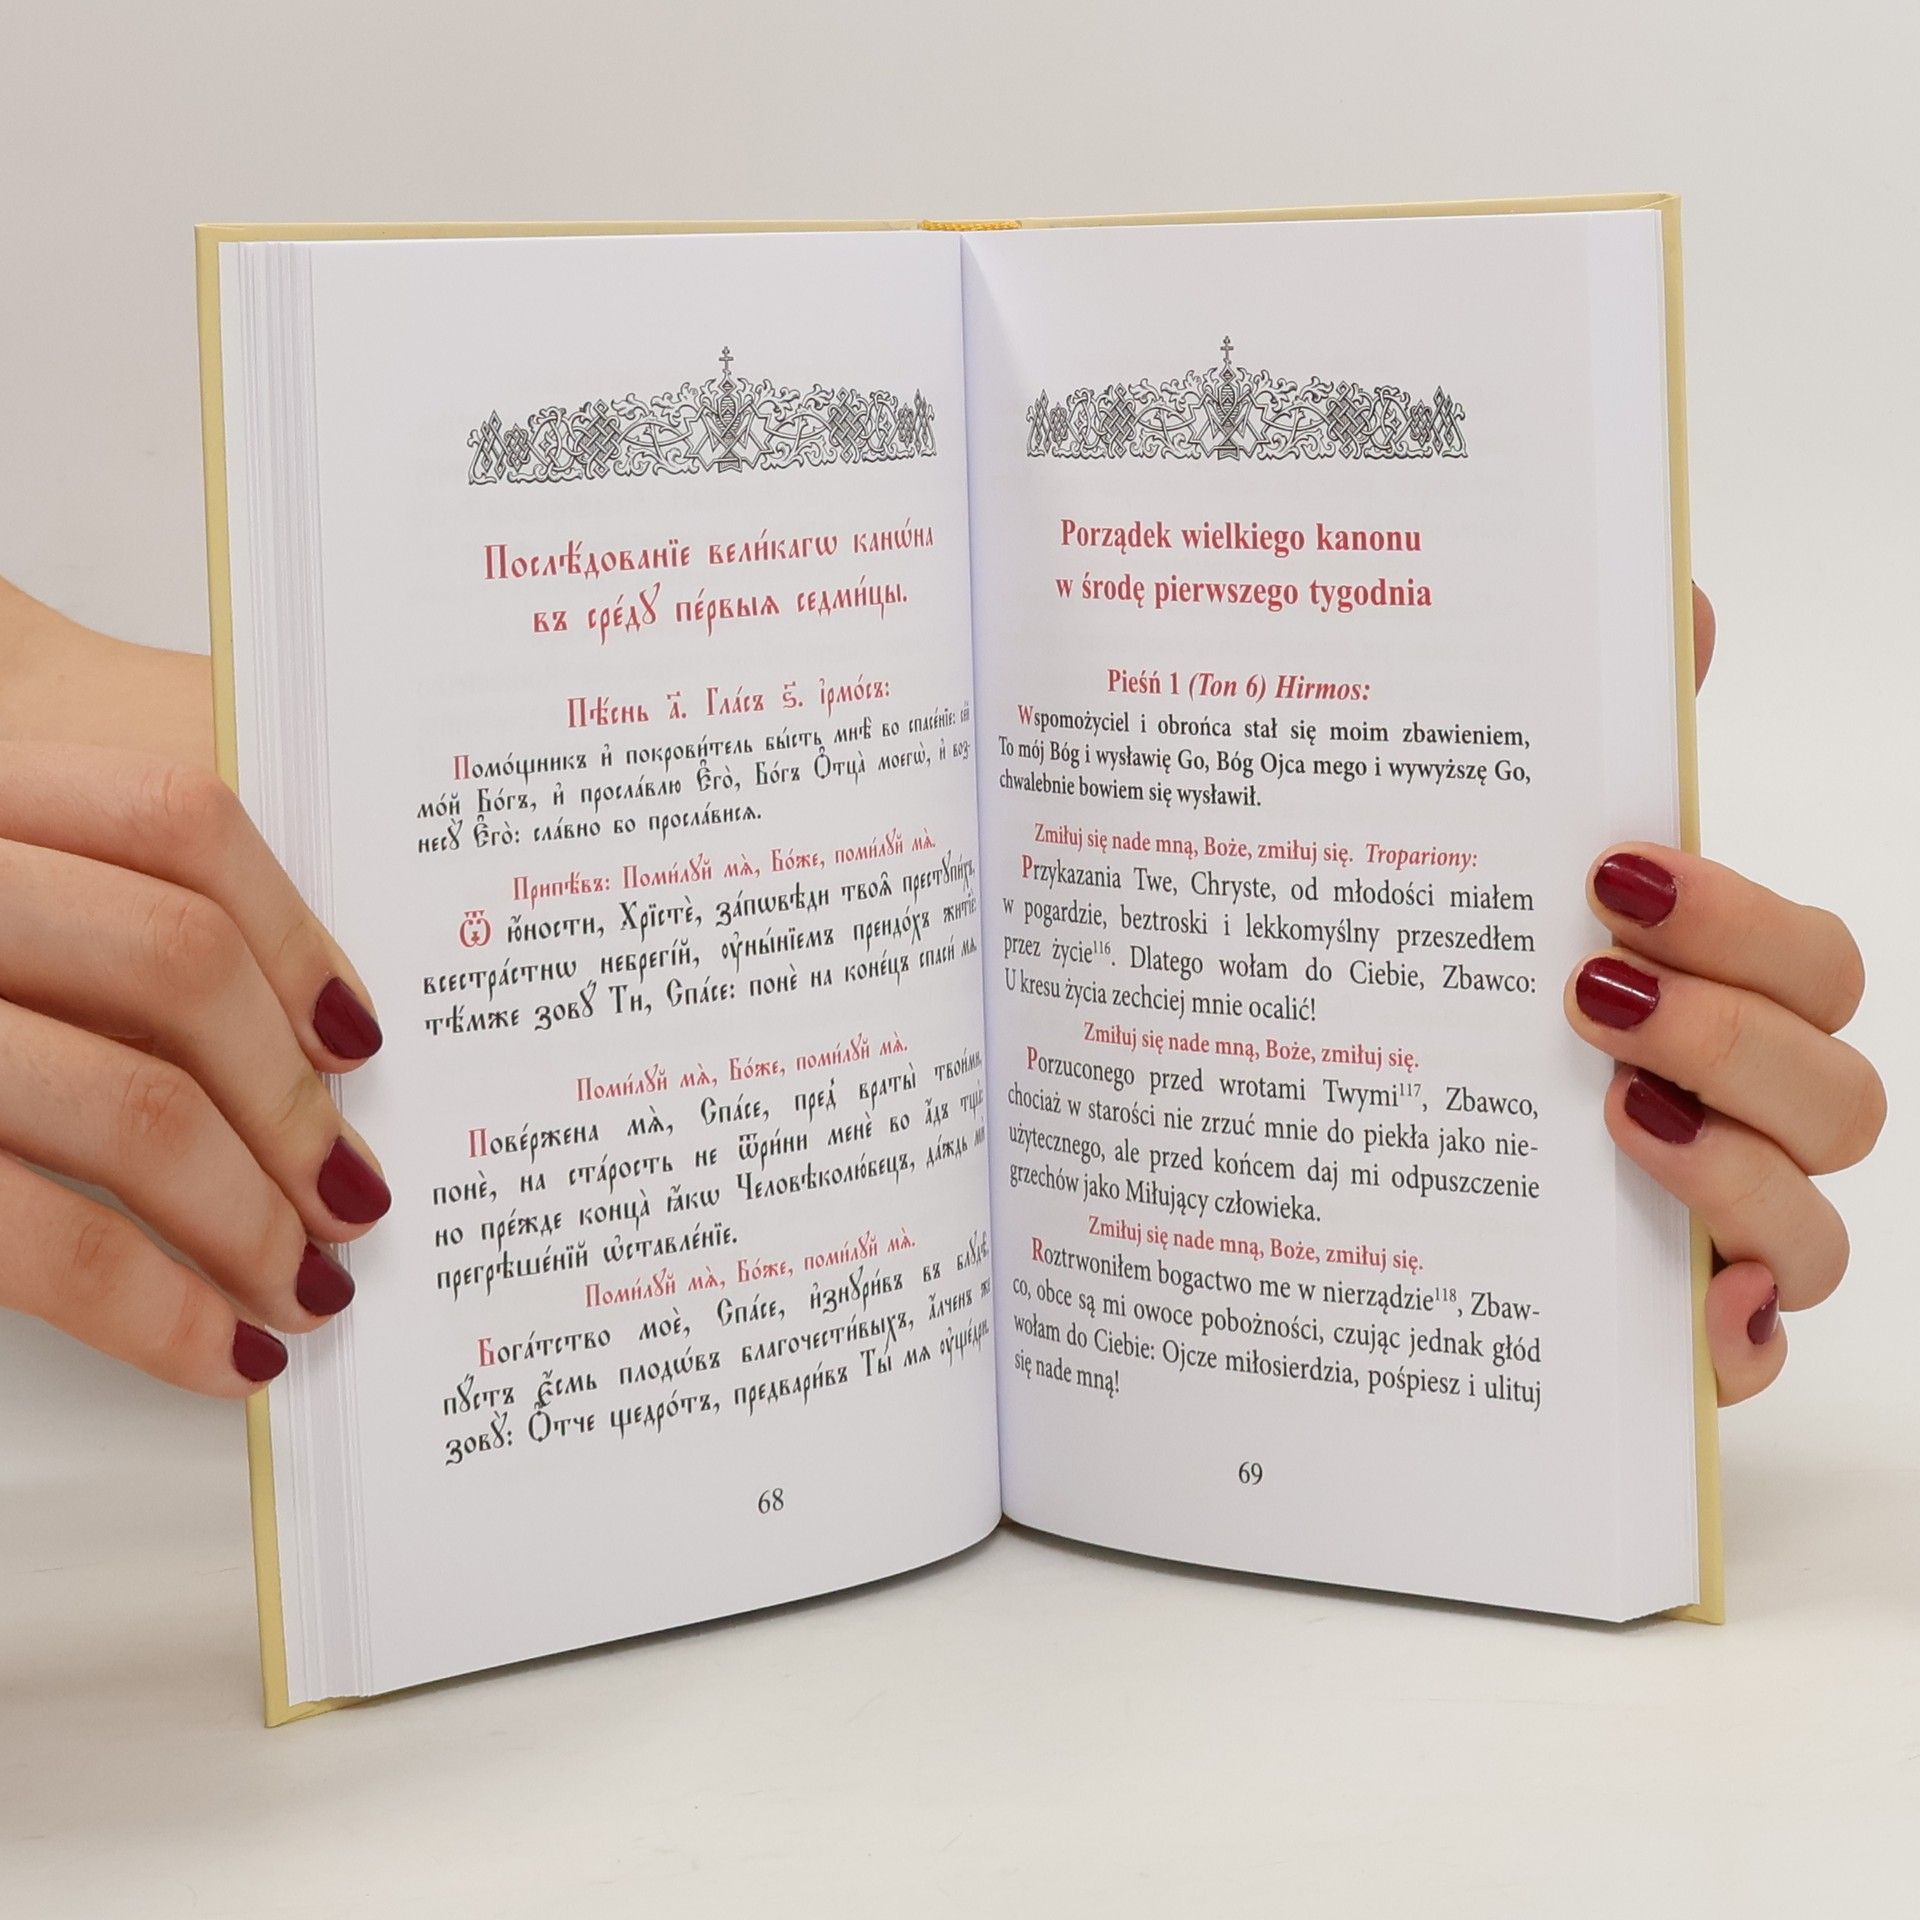 Послѣ́дованїе вели́кагѡ канѡ́на
въ сре́дꙋ пе́рвыѧ седми́цы.
Пѣ́снь а҃. Гла́съ ѕ҃. і҆рмо́съ:
Помо́щникъ и҆ покрови́тель бы́сть мнѣ̀ во спасе́нїе: се́й
мо́й Бг҃ъ, и҆ просла́влю Є҆го̀, Бо́гъ Ѻ҆тца̀ моегѡ̀, и҆ воз-
несꙋ̀ Є҆го̀: сла́внѡ бо просла́висѧ.
Припѣ́въ: Поми́лꙋй мѧ̀, Бо́же, поми́лꙋй мѧ̀.
Ѿ ю҆́ности, Хрїстѐ, за́пѡвѣди твоѧ̑ престꙋпи́хъ,
всестра́стнѡ небреги́й, ᲂу҆ны́нїемъ преидо́хъ житїѐ:
тѣ́мже зовꙋ́ Ти, Спа́се: понѐ на коне́цъ спаси́ мѧ.
Поми́лꙋй мѧ̀, Бо́же, поми́лꙋй мѧ̀.
Пове́ржена мѧ̀, Спа́се, пред̾ враты̑ твои́ми,
понѐ, на ста́рость не ѿри́ни менѐ во а҆́дъ тща̀:
но пре́жде конца̀ ꙗ҆́кѡ Человѣколю́бецъ, да́ждь ми
прегрѣше́нїй ѡ҆ставле́нїе.
Поми́лꙋй мѧ̀, Бо́же, поми́лꙋй мѧ̀.
Бога́тство моѐ, Спа́се, и҆знꙋри́въ въ блꙋдѣ̀,
пꙋ́стъ є҆́смь плодѡ́въ благочести́выхъ, а҆́лченъ же
зовꙋ̀: Ѻ҆́тче щедро́тъ, предвари́въ Ты́ мѧ ᲂу҆ще́дри.
68
Porządek wielkiego kanonu
w środę pierwszego tygodnia
Pieśń 1 (Ton 6) Hirmos:
Wspomożyciel i obrońca stał się moim zbawieniem,
To mój Bóg i wysławię Go, Bóg Ojca mego i wywyższę Go,
chwalebnie bowiem się wysławił.
Zmiłuj się nade mną, Boże, zmiłuj się. Tropariony:
Przykazania Twe, Chryste, od młodości miałem
w pogardzie, beztroski i lekkomyślny przeszedłem
przez życie¹¹⁶. Dlatego wołam do Ciebie, Zbawco:
U kresu życia zechciej mnie ocalić!
Zmiłuj się nade mną, Boże, zmiłuj się.
Porzuconego przed wrotami Twymi¹¹⁷, Zbawco,
chociaż w starości nie zrzuć mnie do piekła jako nie-
użytecznego, ale przed końcem daj mi odpuszczenie
grzechów jako Miłujący człowieka.
Zmiłuj się nade mną, Boże, zmiłuj się.
Roztrwoniłem bogactwo me w nierządzie¹¹⁸, Zbaw-
co, obce są mi owoce pobożności, czując jednak głód
wołam do Ciebie: Ojcze miłosierdzia, pośpiesz i ulituj
się nade mną!
69